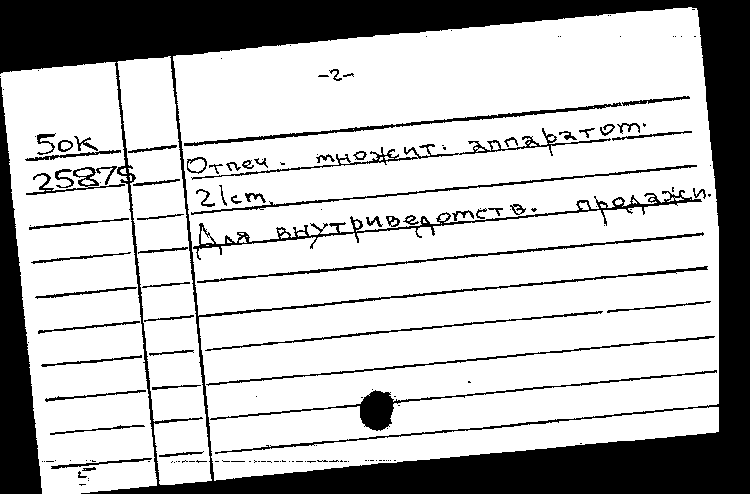 -2-
50к
25875
Отпеч. множит. аппаратом.
21cm.
Для внутриведомств. продажи.
5